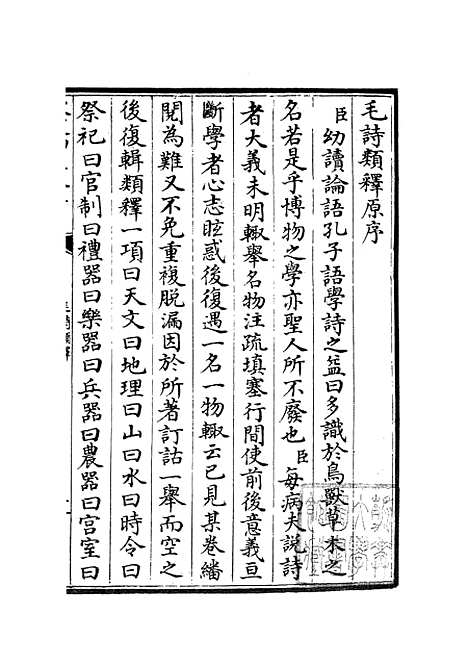 毛詩類釋原序
臣幼讀論語孔子語學詩之益曰多識於鳥獸草木之
名若是乎博物之學亦聖人所不廢也臣每病夫說詩
者大義未明輙舉名物注疏填塞行間使前後意義亘
斷學者心志眩惑後復遇一名一物輙云已見某卷繙
閱為難又不免重複脫漏因於所著訂詁一舉而空之
後復輯類釋一項曰天文曰地理曰山曰水曰時令曰
祭祀曰官制曰禮器曰樂器曰兵器曰農器曰宫室曰